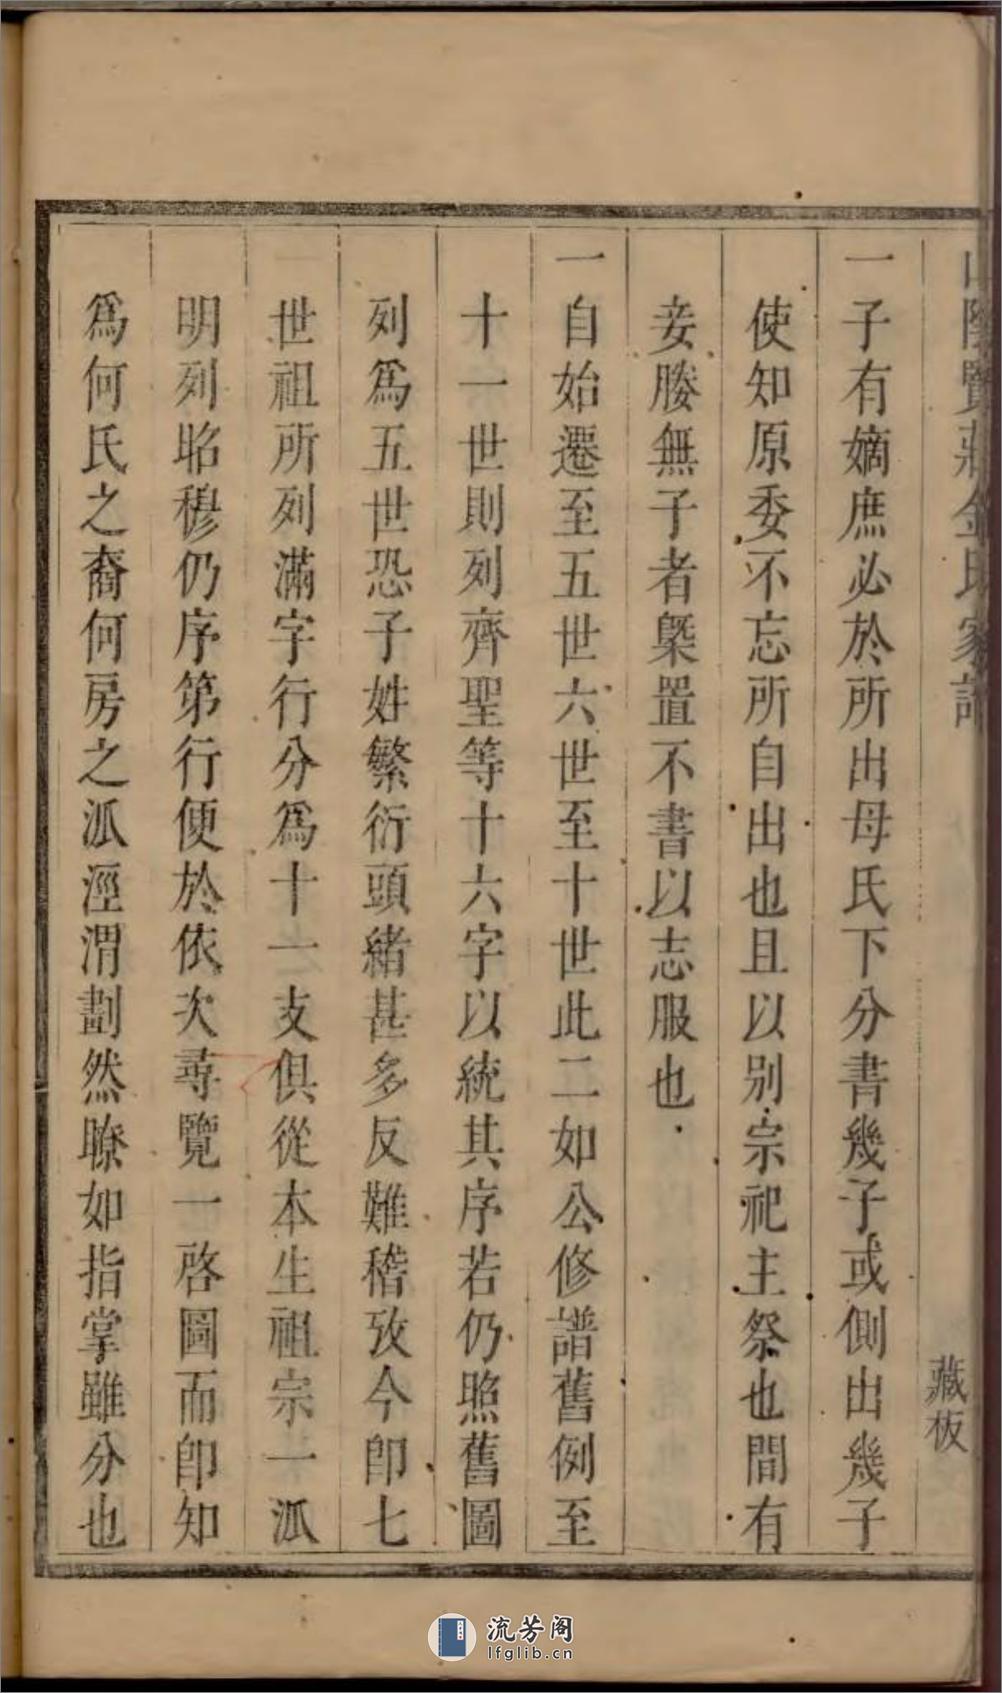 山陰賢莊金氏家譜
藏板
一子有嫡庶必於所出母氏下分書幾子或側出幾子
使知原委不忘所自出也且以别宗祀主祭也間有
妾媵無子者槩置不書以志服也
一自始遷至五世六世至十世此二如公修譜舊例至
十一世則列齊聖等十六字以統其序若仍照舊圖
列爲五世恐子姓繁衍頭緒甚多反難稽攷今卽七
世祖所列滿字行分爲十一支俱從本生祖宗一派
明列昭穆仍序第行便於依次尋覽一啓圖而卽知
爲何氏之裔何房之派涇渭劃然瞭如指掌雖分也
流芳阁
lfglib.cn